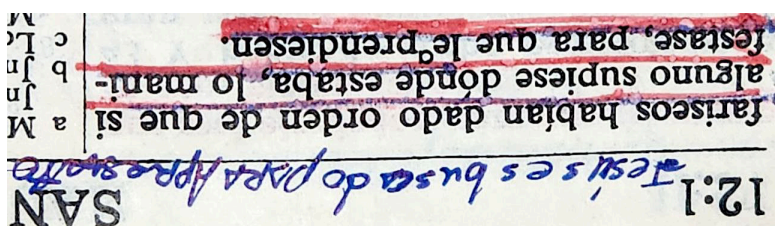 12:1 SAN
Jesús es buscado PARA APResarlo
fariseos habían dado orden de que si
alguno supiese dónde estaba, lo mani-
festase, para que le prendiesen.
a M
Jn
b Jn
c Lc
M